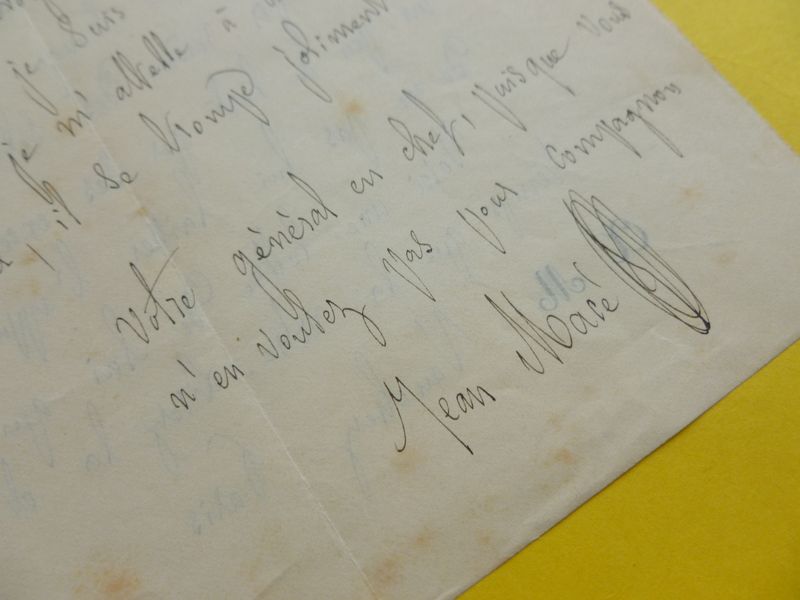 je suis
je m'attelle à
il se trompe joliment
Votre général en chef, puisque vous
n'en voulez pas pour compagnon
Jean Macé